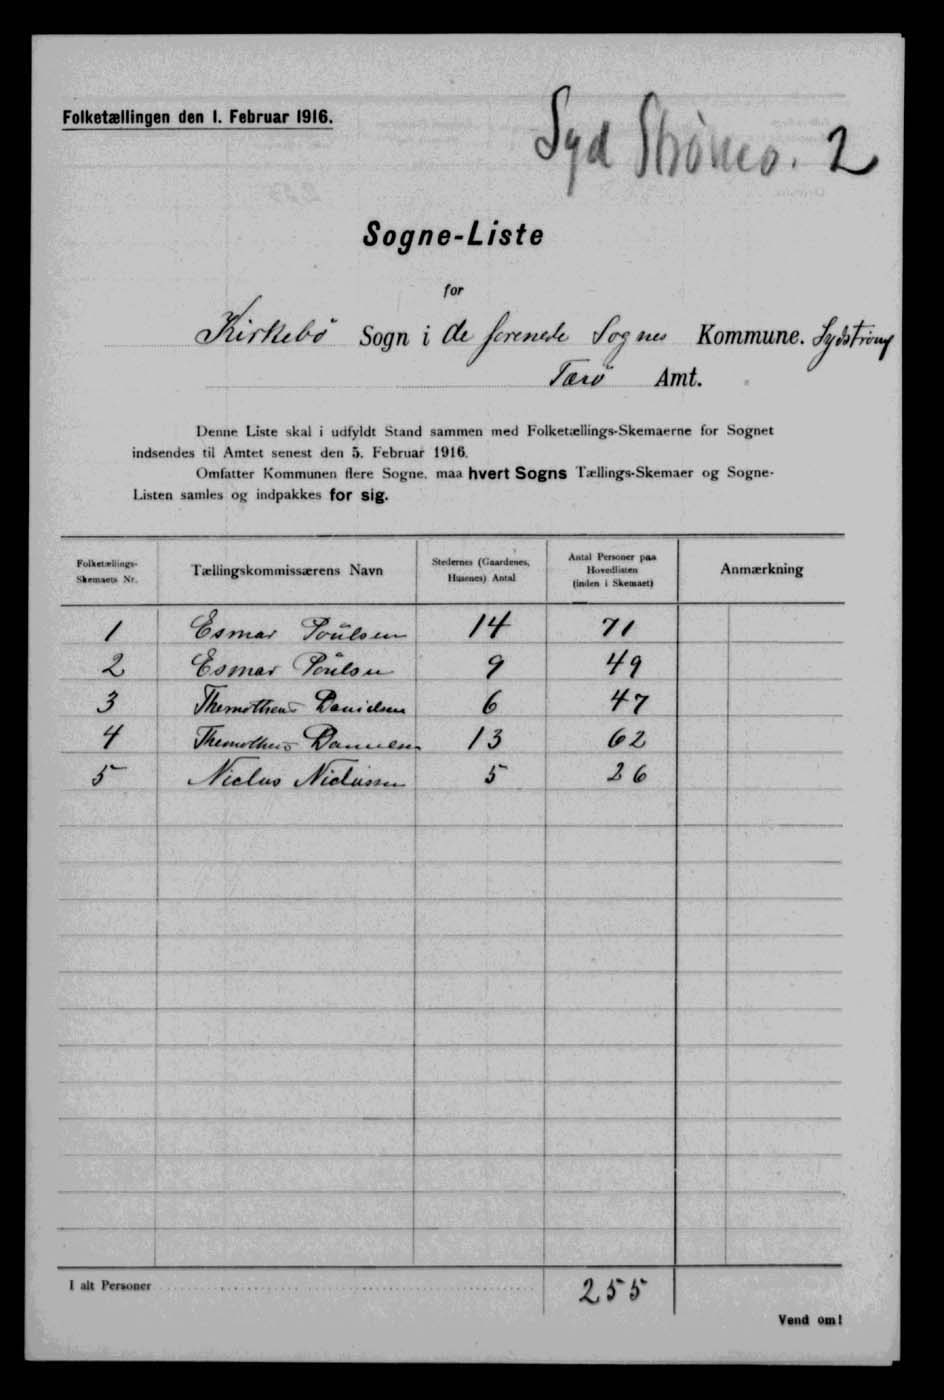 Folketællingen den 1. Februar 1916.
Syd Strømø. 2
Sogne-Liste
for
Kirkebø Sogn i de forenede Sognes Kommune. Sydstrømø
Færø Amt.
Denne Liste skal i udfyldt Stand sammen med Folketællings-Skemaerne for Sognet
indsendes til Amtet senest den 5. Februar 1916.
Omfatter Kommunen flere Sogne, maa hvert Sogns Tællings-Skemaer og Sogne-
Listen samles og indpakkes for sig.
Folketællings-Skemaets Nr. Tællingskommissærens Navn Stedernes (Gaardenes, Husenes) Antal Antal Personer paa Hovedlisten (inden i Skemaet) Anmærkning
1 Esmar Poulsen 14 71
2 Esmar Poulsen 9 49
3 Themotheus Danielsen 6 47
4 Themotheus Danielsen 13 62
5 Niclas Niclassen 5 26
I alt Personer 255
Vend om!